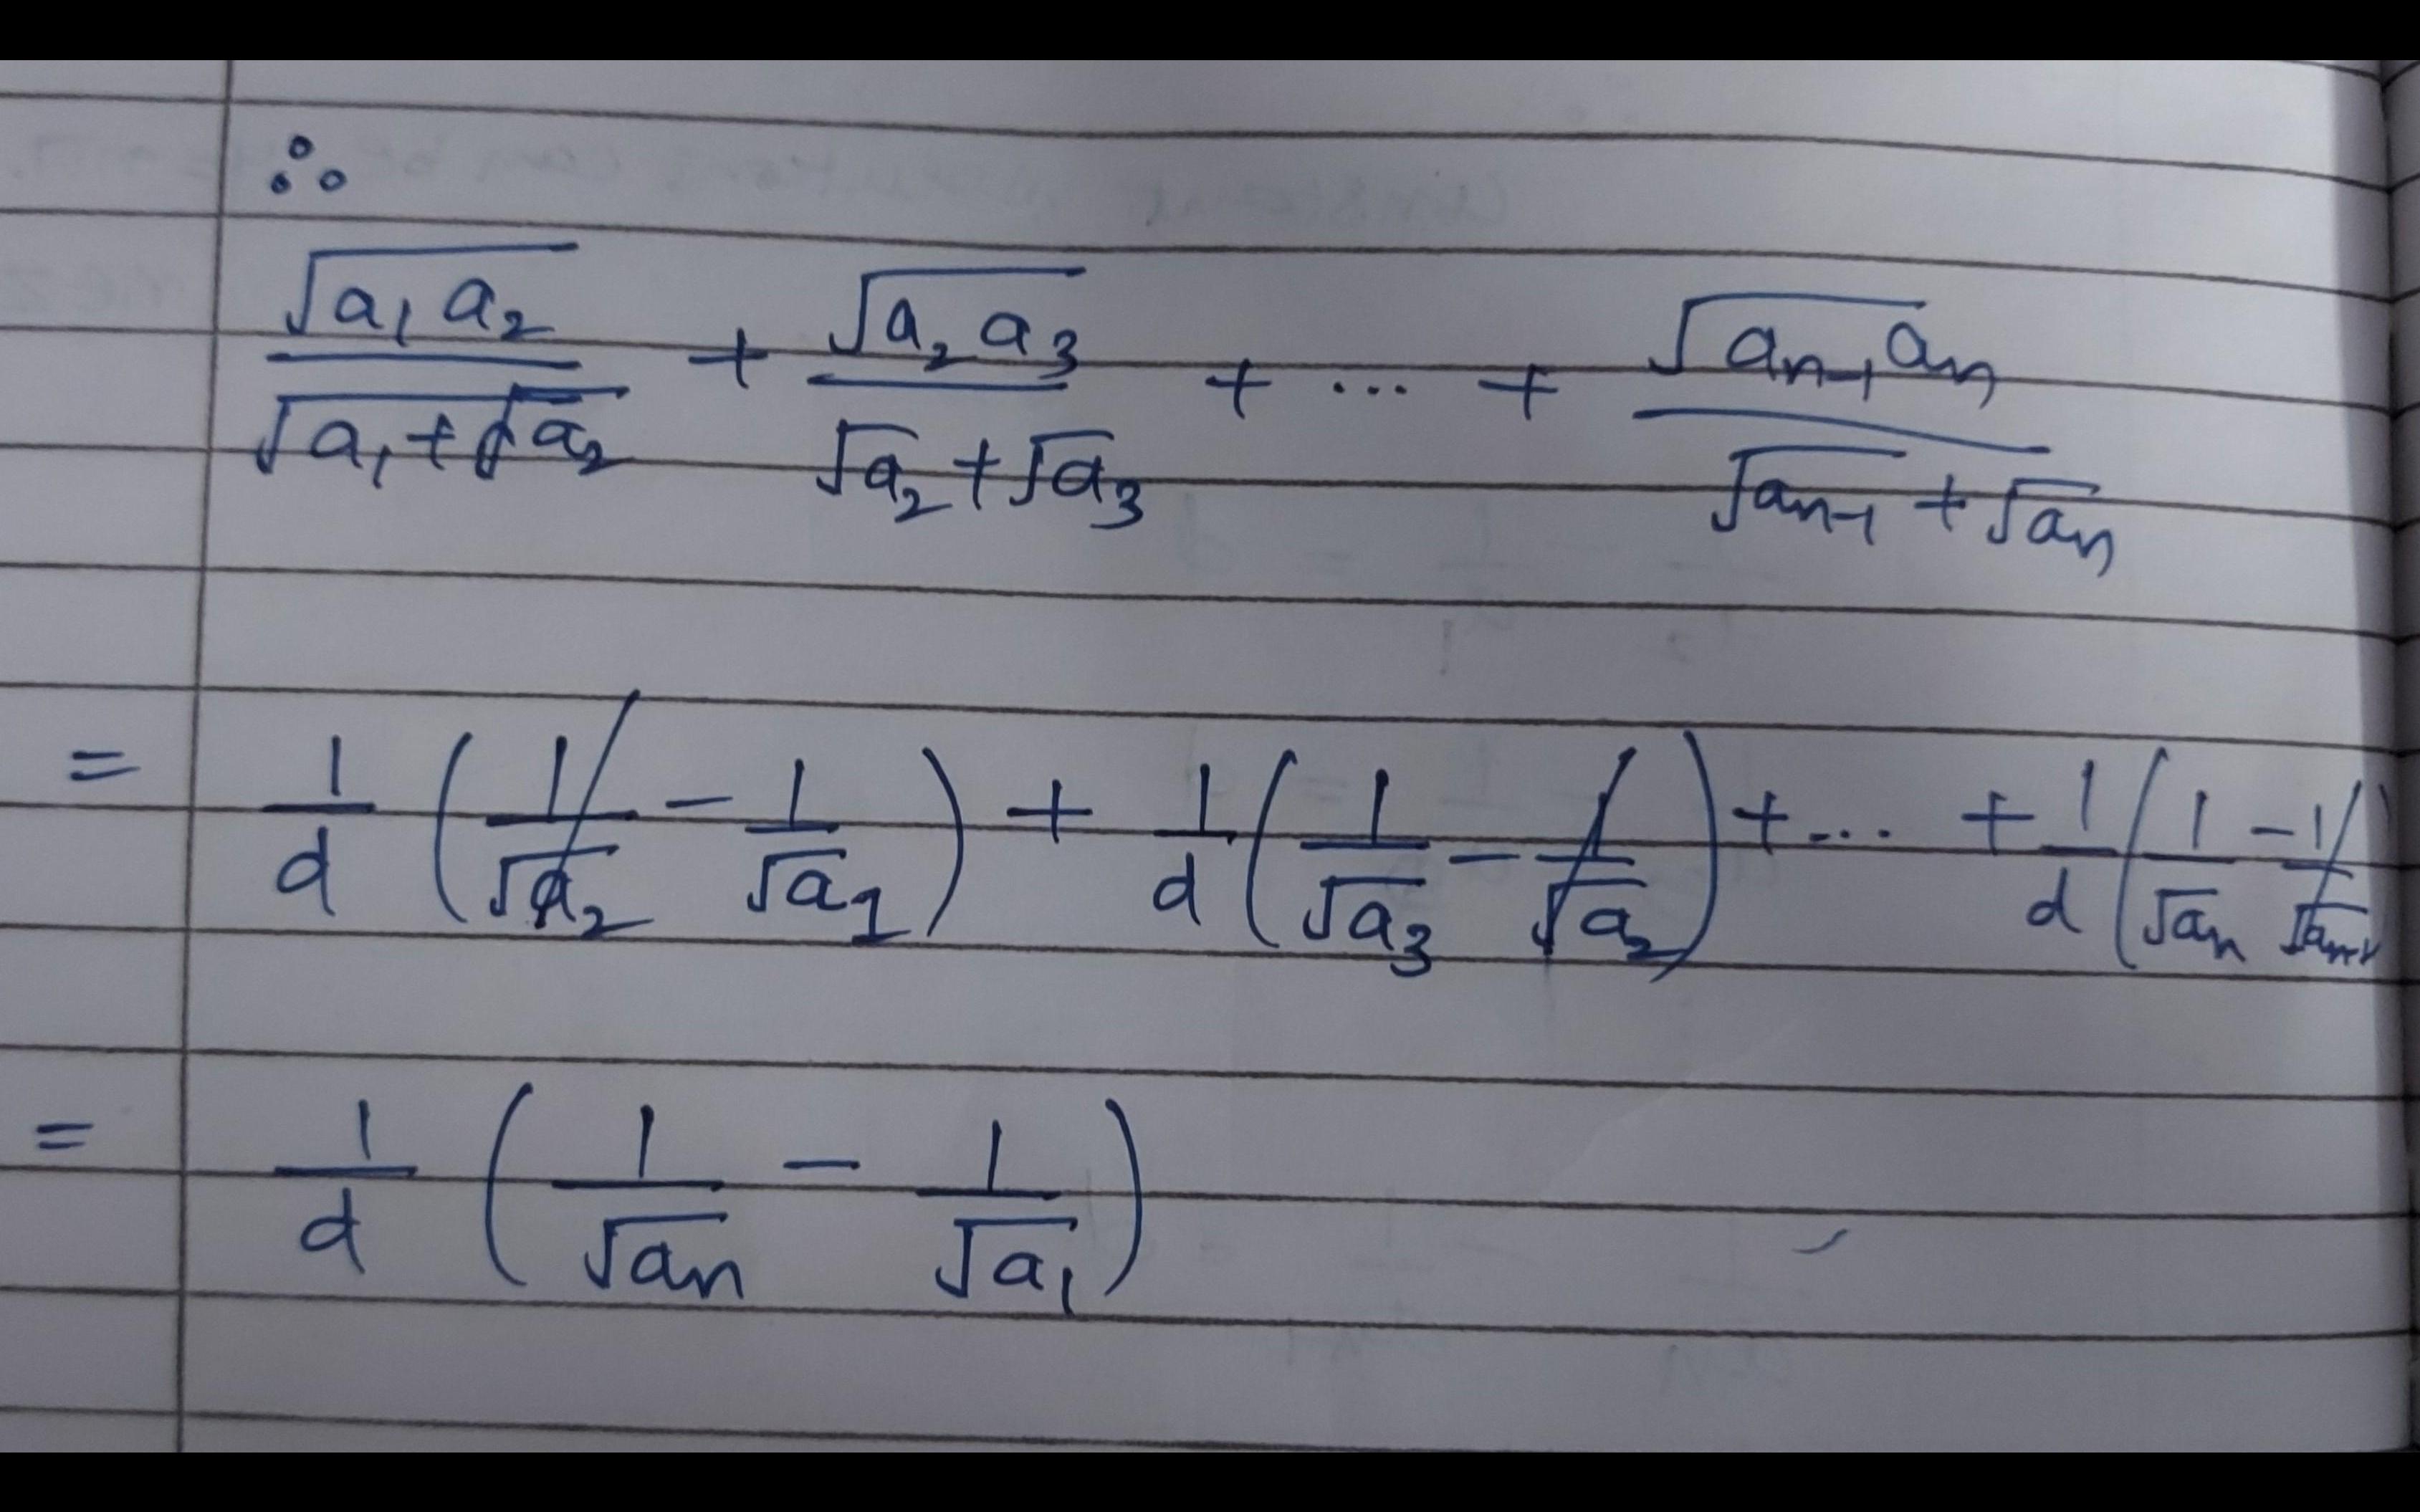 ∴
√(a₁ a₂) / (√a₁ + √a₂) + √(a₂ a₃) / (√a₂ + √a₃) + ... + √(aₙ₋₁ aₙ) / (√aₙ₋₁ + √aₙ)
= 1/d (1/√a₂ − 1/√a₁) + 1/d (1/√a₃ − 1/√a₂) + ... + 1/d (1/√aₙ − 1/√aₙ₋₁)
= 1/d (1/√aₙ − 1/√a₁)